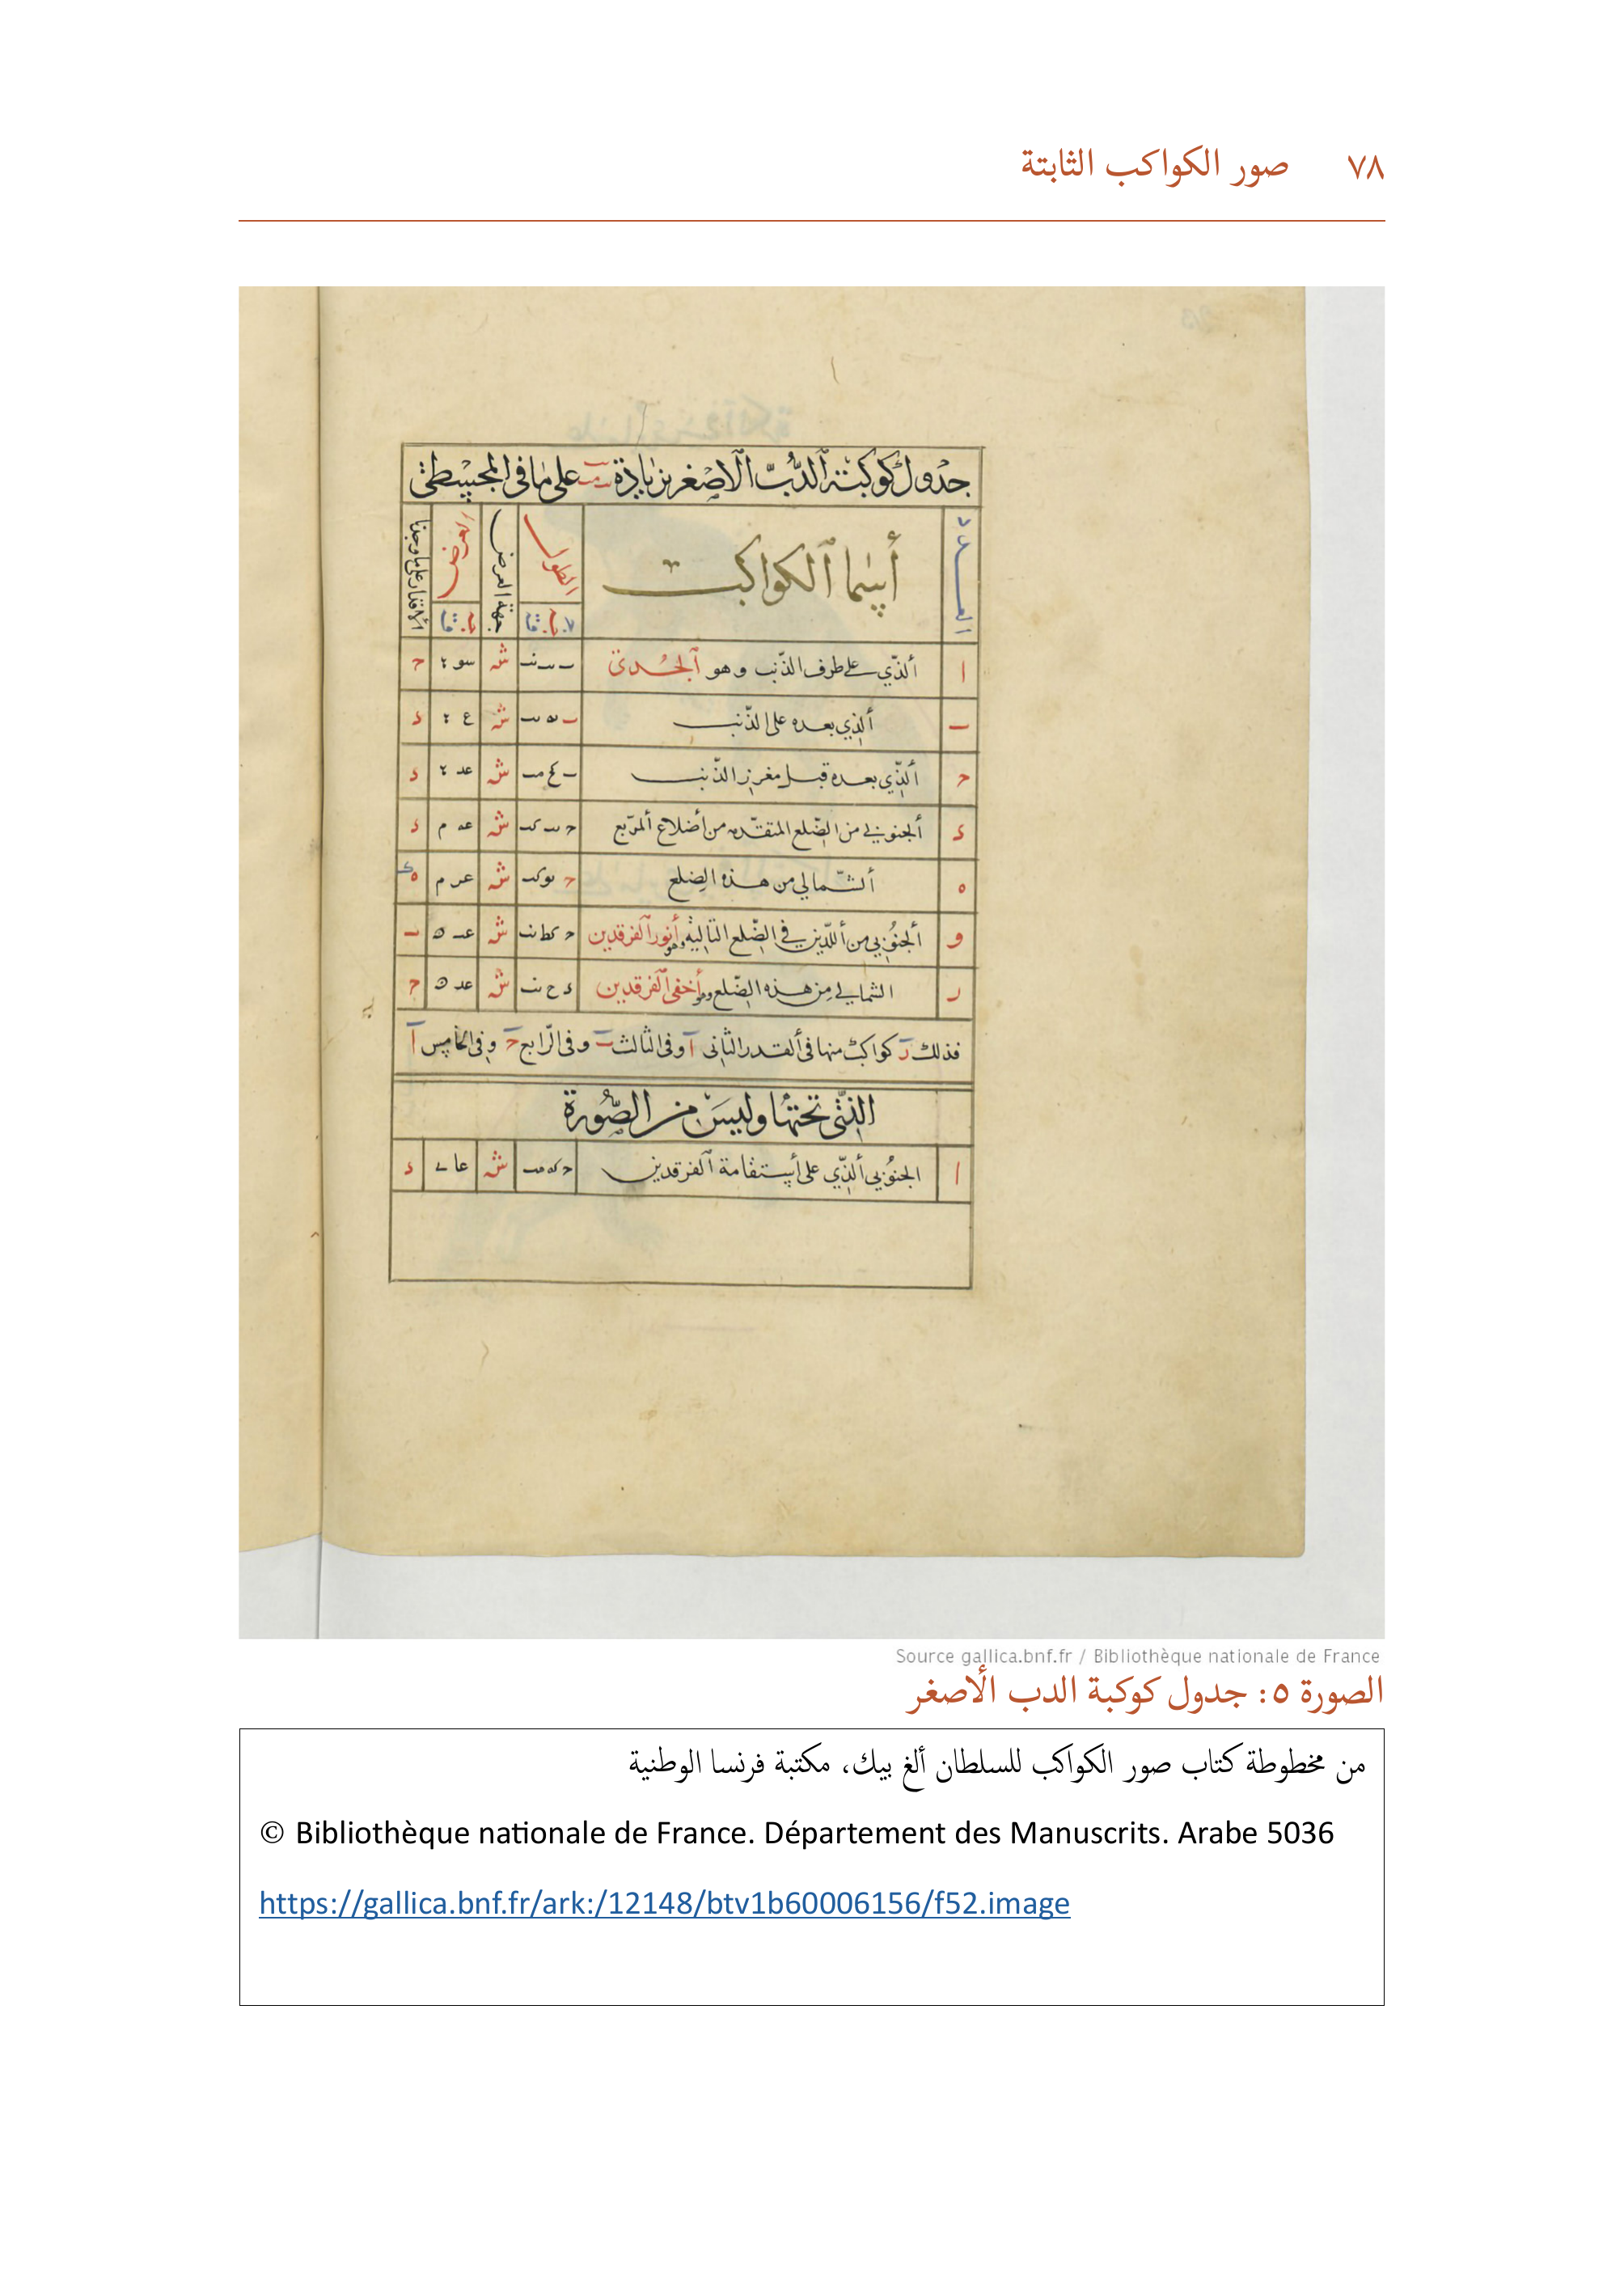 ٧٨ صور الكواكب الثابتة
جدول كوكبة الدب الاصغر بزيادة على ما فى المجسطى
العدد أسما الكواكب الطول جهة العرض العرض الاقدار على ما وجدنا
ا ألذي على طرف الذنب وهو الجدى ش ح
ب ألذي بعده على الذنب ش ع د
ح ألذي بعده قبل مغرز الذنب ش عد د
د ألجنوبي من الضلع المتقدمه من أضلاع ألمربع ش عه م د
ه ألشمالي من هذه الضلع ش عر م ه
و ألجنوبي من أللذين في الضلع التاليه وهو أنور الفرقدين ح كط نب ش ب
ر الشمالي من هذه الضلع وهو أخفى الفرقدين د ح نب ش ح
فذلك ر كواكب منها فى ألقدر الثانى ا وفى الثالث ب وفى الرابع ح وفى الخامس ا
التى تحتها وليس من الصورة
ا الجنوبي ألذي على أستقامة الفرقدين ح كه مب ش عا د
Source gallica.bnf.fr / Bibliothèque nationale de France
الصورة ٥: جدول كوكبة الدب الأصغر
من مخطوطة كتاب صور الكواكب للسلطان ألغ بيك، مكتبة فرنسا الوطنية
© Bibliothèque nationale de France. Département des Manuscrits. Arabe 5036
https://gallica.bnf.fr/ark:/12148/btv1b60006156/f52.image